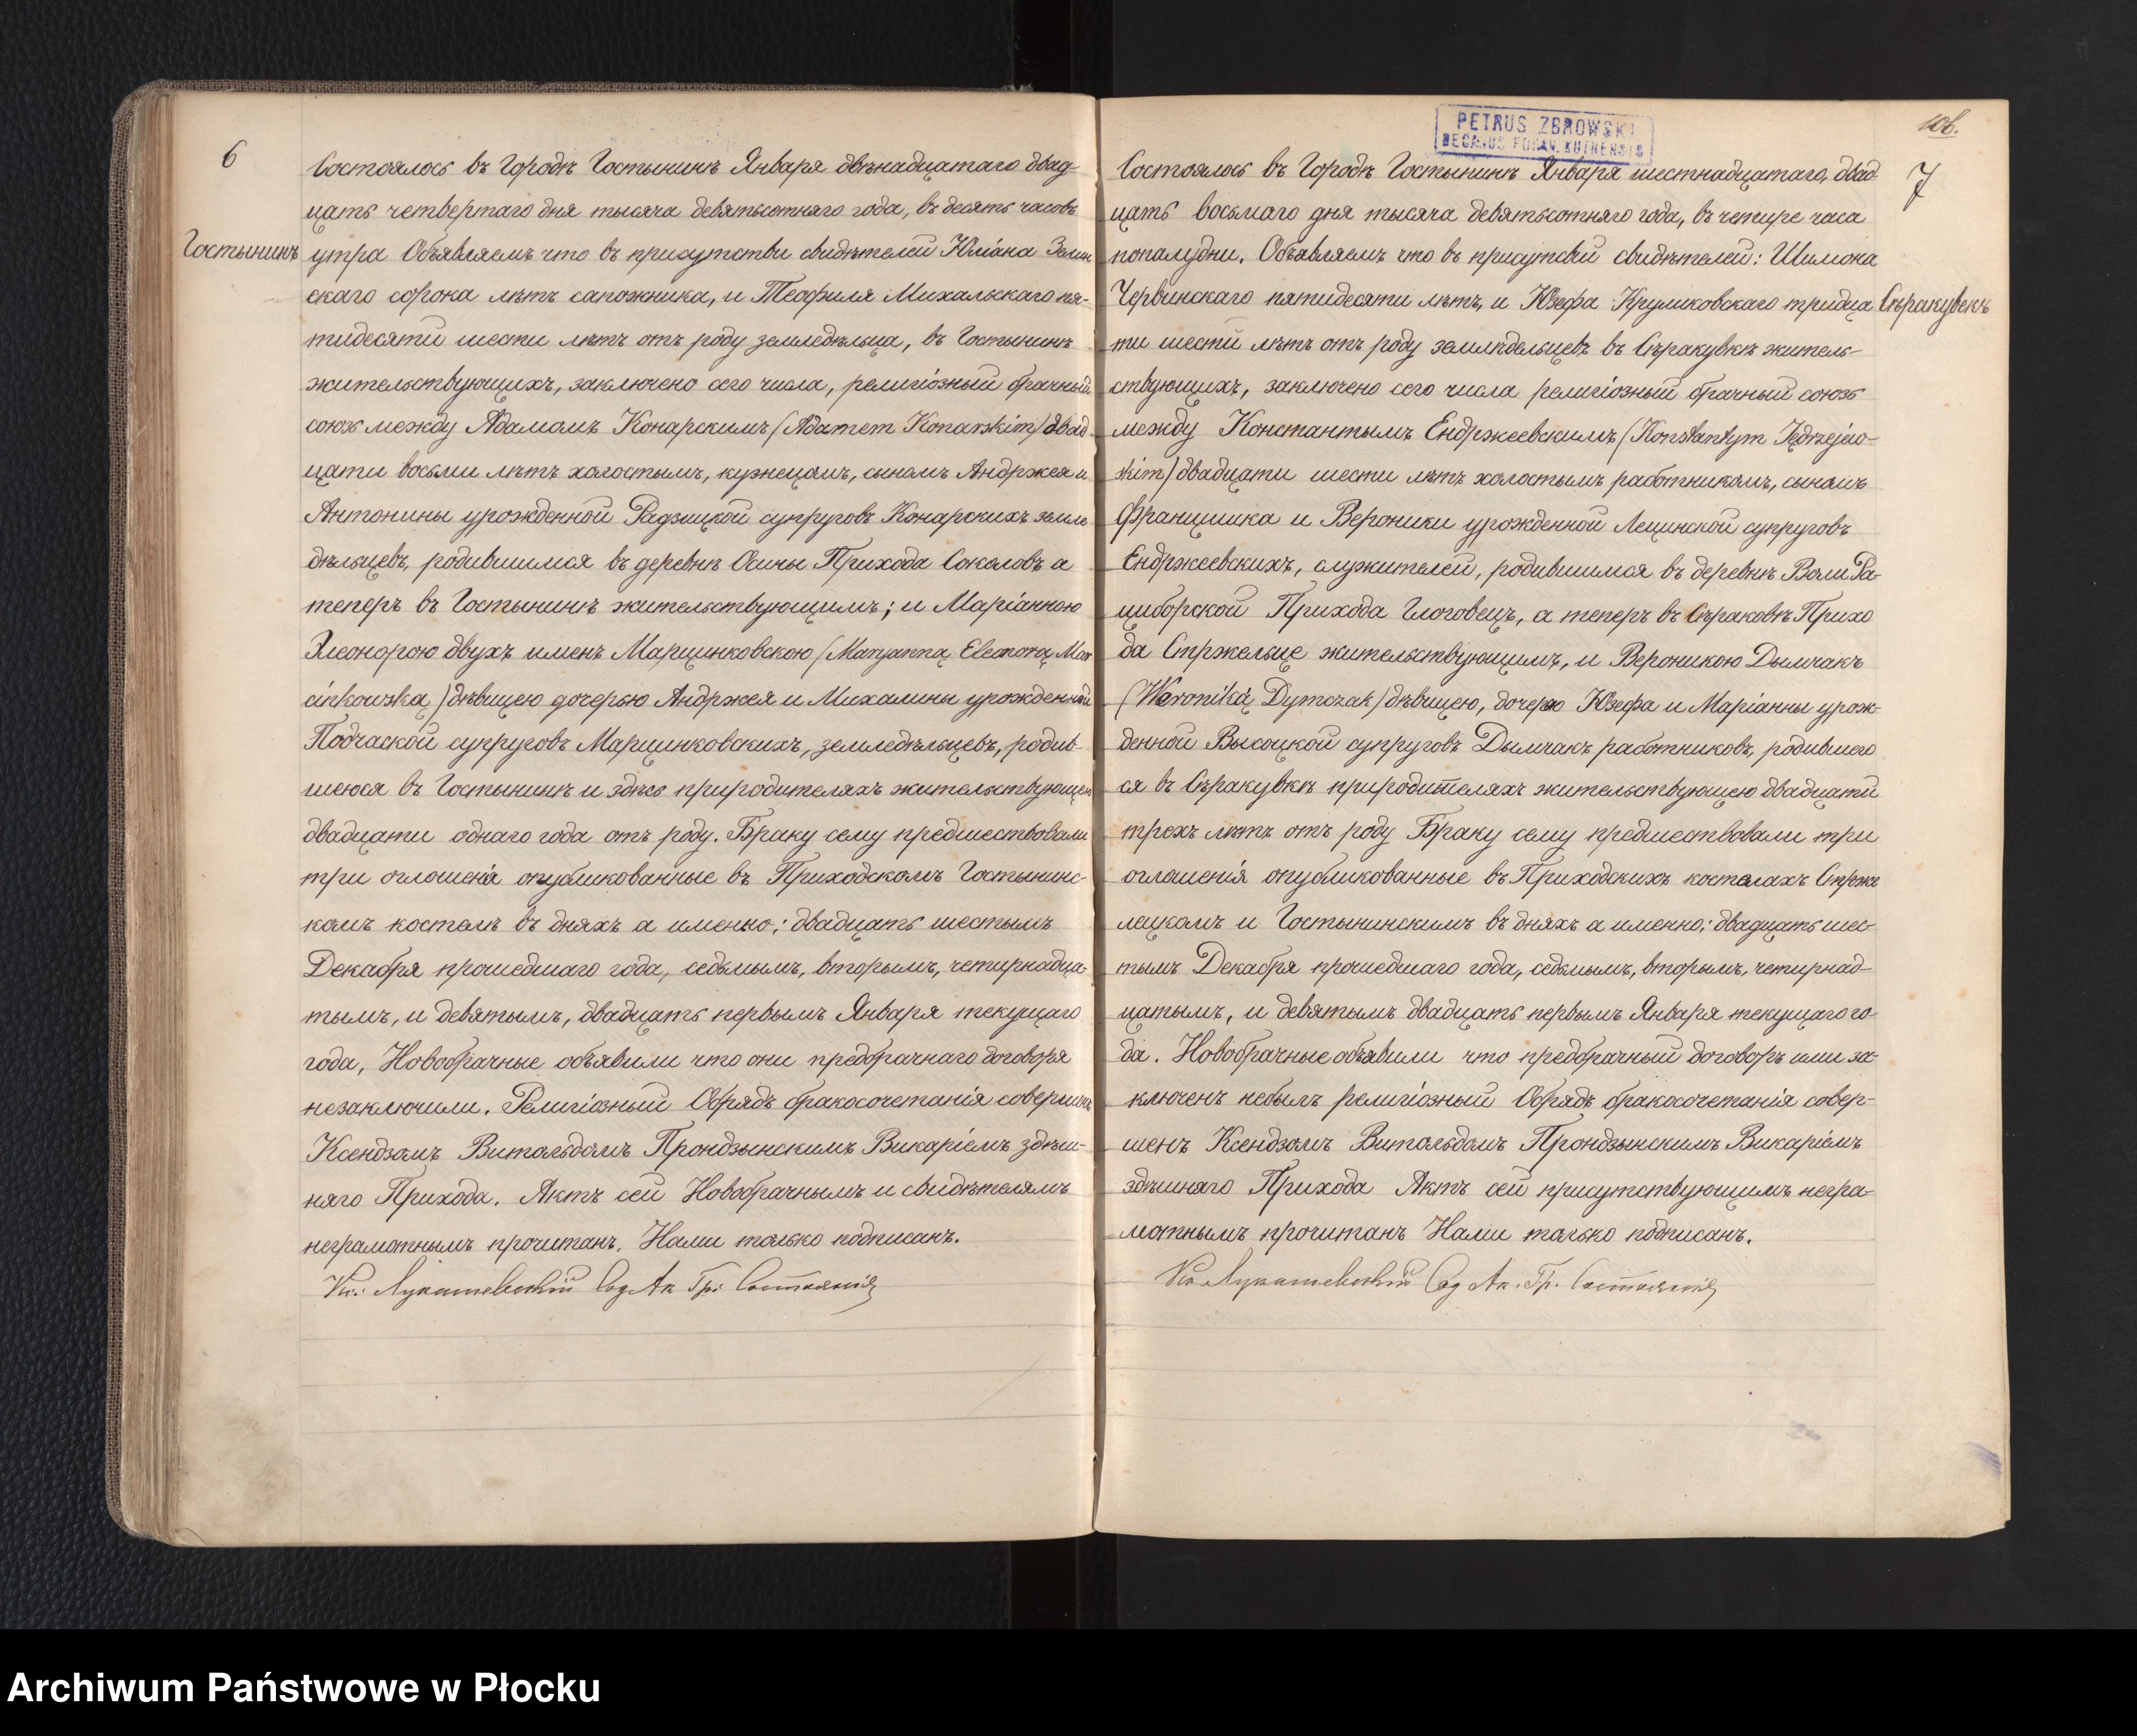 6
Гостынинъ
Состоялось въ Городѣ Гостынинѣ Января двѣнадцатаго двад-
цать четвертаго дня тысяча девятьсотняго года, въ десять часовъ
утра Объявляемъ что въ присутстви свидѣтелей Юліана Зелин
скаго сорока лѣтъ сапожника, и Теофиля Михальскаго пя-
тидесяти шести лѣтъ отъ роду земледѣльца, въ Гостынинѣ
жительствующихъ, заключено сего числа, религіозный брачный
союзъ между Адамомъ Конарскимъ (Adamem Konarskim) двад
цати восьми лѣтъ холостымъ, кузнецомъ, сыномъ Андржея и
Антонины урожденной Радзицкой супруговъ Конарскихъ земле
дѣльцевъ, родившимся въ деревнѣ Осины Прихода Соколовъ а
теперъ въ Гостынинѣ жительствующимъ; и Маріанною
Элеонорою двухъ именъ Марцинковскою (Maryanną Eleonorą Mar
cinkowską) дѣвицею дочерью Андржея и Михалины урожденной
Подчаской супруговъ Марцинковскихъ, земледѣльцевъ, родив-
шеюся въ Гостынинѣ и здѣсь природителяхъ жительствующею
двадцати однаго года отъ роду. Браку сему предшествовали
три оглошенія опубликованные въ Приходскомъ Гостынинс-
комъ костелѣ въ дняхъ а именно: двадцать шестымъ
Декабря прошедшаго года, седьмымъ, вторымъ, четирнадца-
тымъ, и девятымъ, двадцать первымъ Января текущаго
года, Новобрачные объявили что они предбрачнаго договоря
незаключили. Религіозный Обрядъ бракосочетанія совершенъ
Ксендзомъ Витольдомъ Прондзынскимъ Викаріемъ здѣш-
няго Прихода. Актъ сей Новобрачнымъ и свидѣтелямъ
неграмотнымъ прочитанъ. Нами только подписанъ.
Кс: Лукашевскій Сод Ак Гр: Состоянія
PETRUS ZBROWSKI
DECANUS FORAN. KUTNENSIS
106.
7
Сѣракувекъ
Состоялось въ Городѣ Гостынинѣ Января шестнадцатаго, двад
цать восьмаго дня тысяча девятьсотняго года, въ четире часа
попалудни. Объявляемъ что въ присутсвій свидѣтелей: Шимона
Червинскаго пятидесяти лѣтъ, и Юзефа Круликовскаго тридца
ти шести лѣтъ отъ роду землѣдельцевъ въ Сѣракувкѣ житель-
ствующихъ, заключено сего числа религіозный брачный союзъ
между Константымъ Ендржеевскимъ (Konstantym Jędrzejew-
skim) двадцати шести лѣтъ холостымъ работникомъ, сыномъ
Францишка и Вероники урожденной Лещинской супруговъ
Ендржеевскихъ, служителей, родившимся въ деревнѣ Воли Ра-
циборской Прихода Глоговецъ, а теперъ въ Сѣраковѣ Прихо
да Стржельце жительствующимъ, и Вероникою Дымчакъ
(Weroniką Dymczak) дѣвицею, дочерю Юзефа и Маріанны урож-
денной Высоцкой супруговъ Дымчакъ работниковъ, родившею
ся въ Сѣракувкѣ природителяхъ жительствующею двадцати
трехъ лѣтъ отъ роду Браку сему предшествовали три
оглошенія опубликованные въ Приходскихъ костелахъ Стрже
лецкомъ и Гостынинскимъ въ дняхъ а именно: двадцать шес-
тымъ Декабря прошедшаго года, седьмымъ, вторымъ, четирнад-
цатымъ, и девятымъ двадцать первымъ Января текущаго го-
да. Новобрачные объявили что предбрачный договоръ ими за-
ключенъ небылъ религіозный Обрядъ бракосочетанія совер-
шенъ Ксендзомъ Витольдомъ Прондзынскимъ Викаріемъ
здѣшняго Прихода Актъ сей присутствующимъ негра-
мотнымъ прочитанъ Нами только подписанъ.
Кс Лукашевскій Сод Ак. Гр. Состоянія
Archiwum Państwowe w Płocku